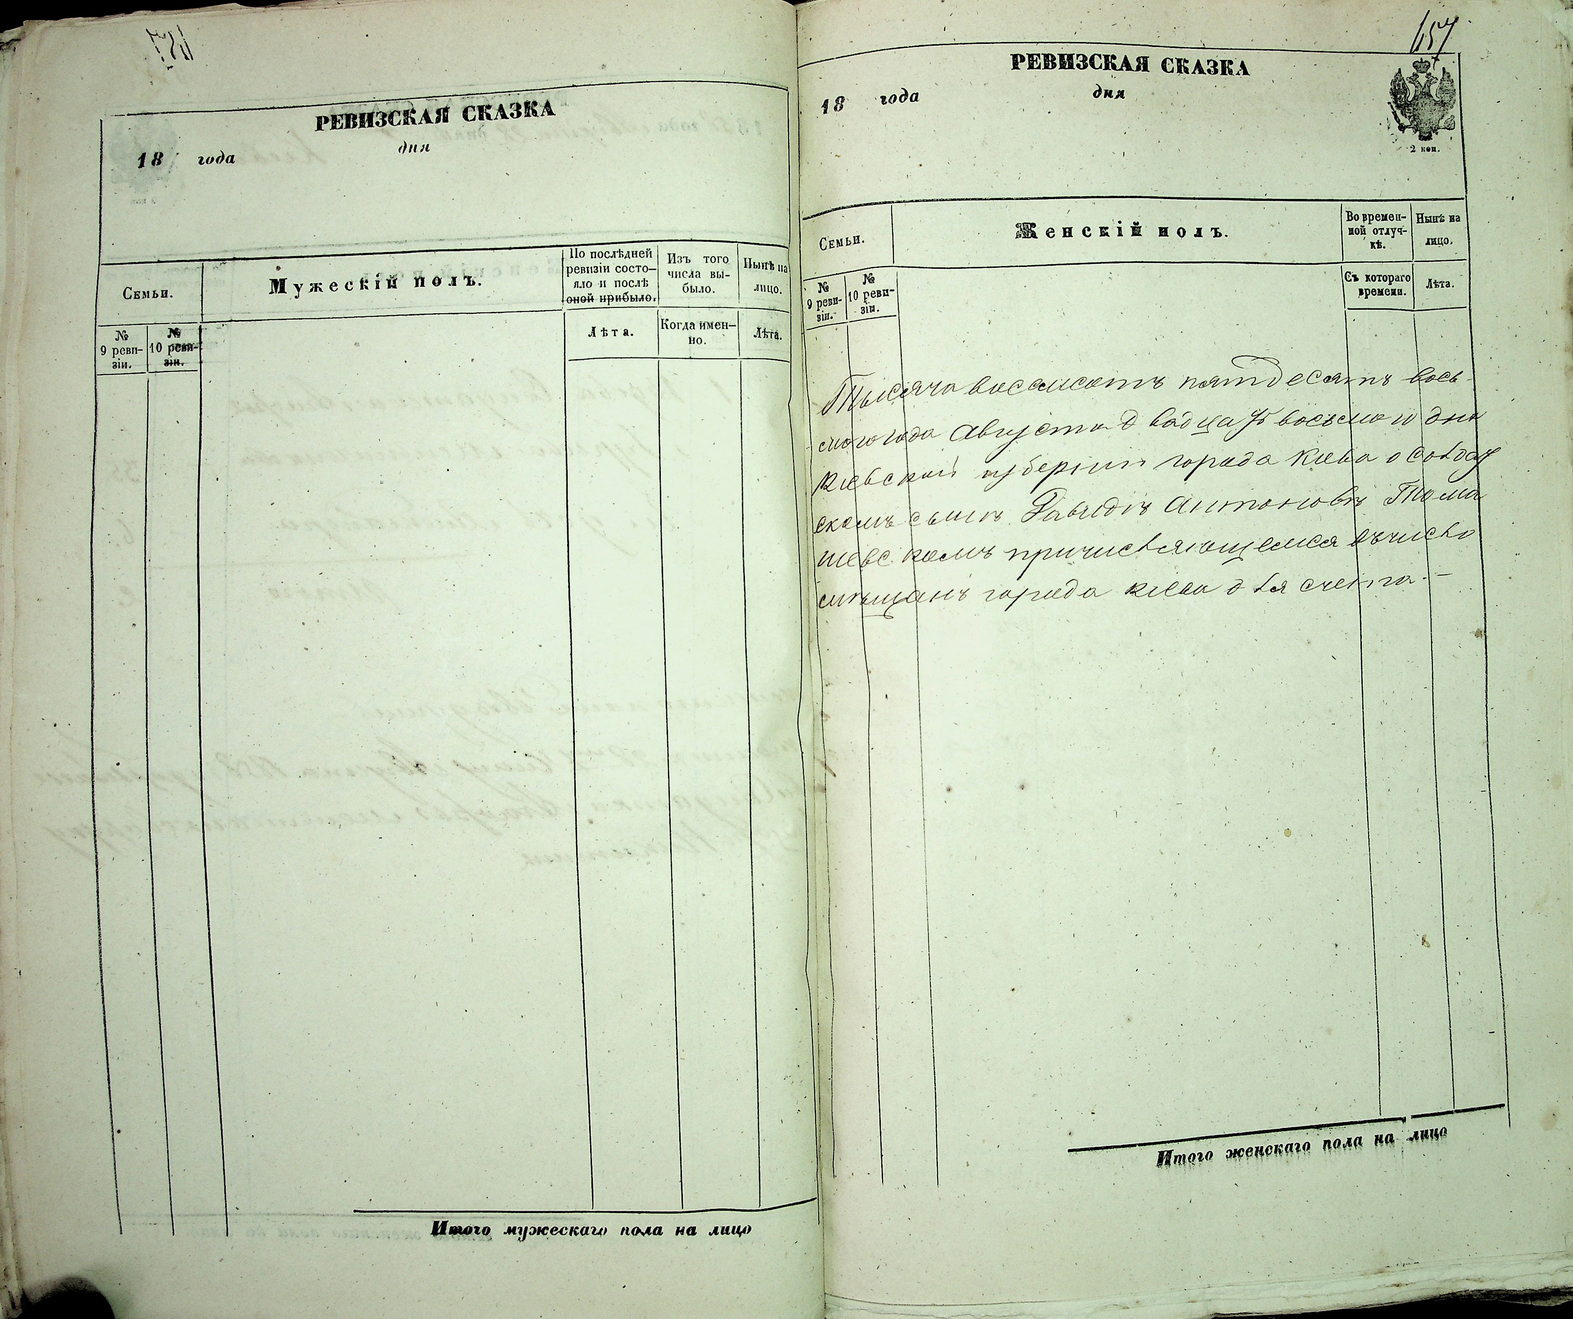 РЕВИЗСКАЯ СКАЗКА
18 года дня
Семьи.
Мужескій полъ.
По послѣдней ревизіи состо-
яло и послѣ оной прибыло.
Изъ того числа вы-
было.
Нынѣ на лицо.
№ 9 реви-
зіи.
№ 10 реви-
зіи.
Лѣта.
Когда имен-
но.
Лѣта.
Итого мужескаго пола на лицо
657
РЕВИЗСКАЯ СКАЗКА
18 года дня
2 коп.
Семьи.
Женскій полъ.
Во времен-
ной отлуч-
кѣ.
Нынѣ на лицо.
№ 9 реви-
зіи.
№ 10 реви-
зіи.
Съ котораго времени.
Лѣта.
Тысяча восемсотъ пятдесятъ вось-
мого года Августа двадцать восьмого дня
Кіевской губерніи города Кіева о солдат
скомъ сынѣ Давидѣ Антоновѣ Тома
шевскомъ причисляющемся въ число
мѣщанъ города Кіева для счета.
Итого женскаго пола на лицо